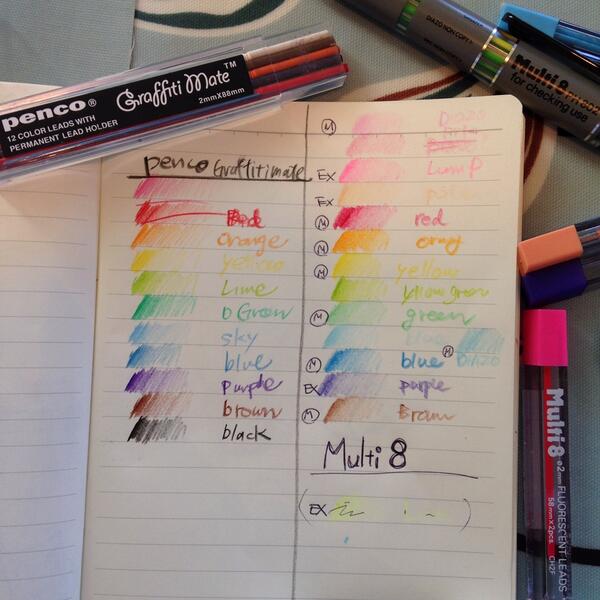 penco® Graffiti Mate™
2mmX88mm
12 COLOR LEADS WITH
PERMANENT LEAD HOLDER
DIAZO NON COPY
Multi 8
for checking use
penco Graffitimate
Red
orange
yellow
Lime
b Green
sky
blue
purple
brown
black
M DIAZO
Pink
EX Lump
EX
M red
M orang
M yellow
yellow green
M green
M blue
M DIAZO
EX purple
M Brown
Multi 8
(EX )
Multi 8 φ2mm FLUORESCENT LEADS
58mm×2pcs. CH2F